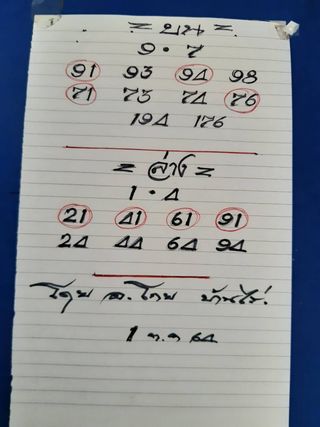 = บน =
9 . 7
91 93 94 98
71 73 74 76
194 176
= ล่าง =
1 . 4
21 41 61 91
24 44 64 94
โดย อ. โกย บ้านไร่.
1 ต.ค 64